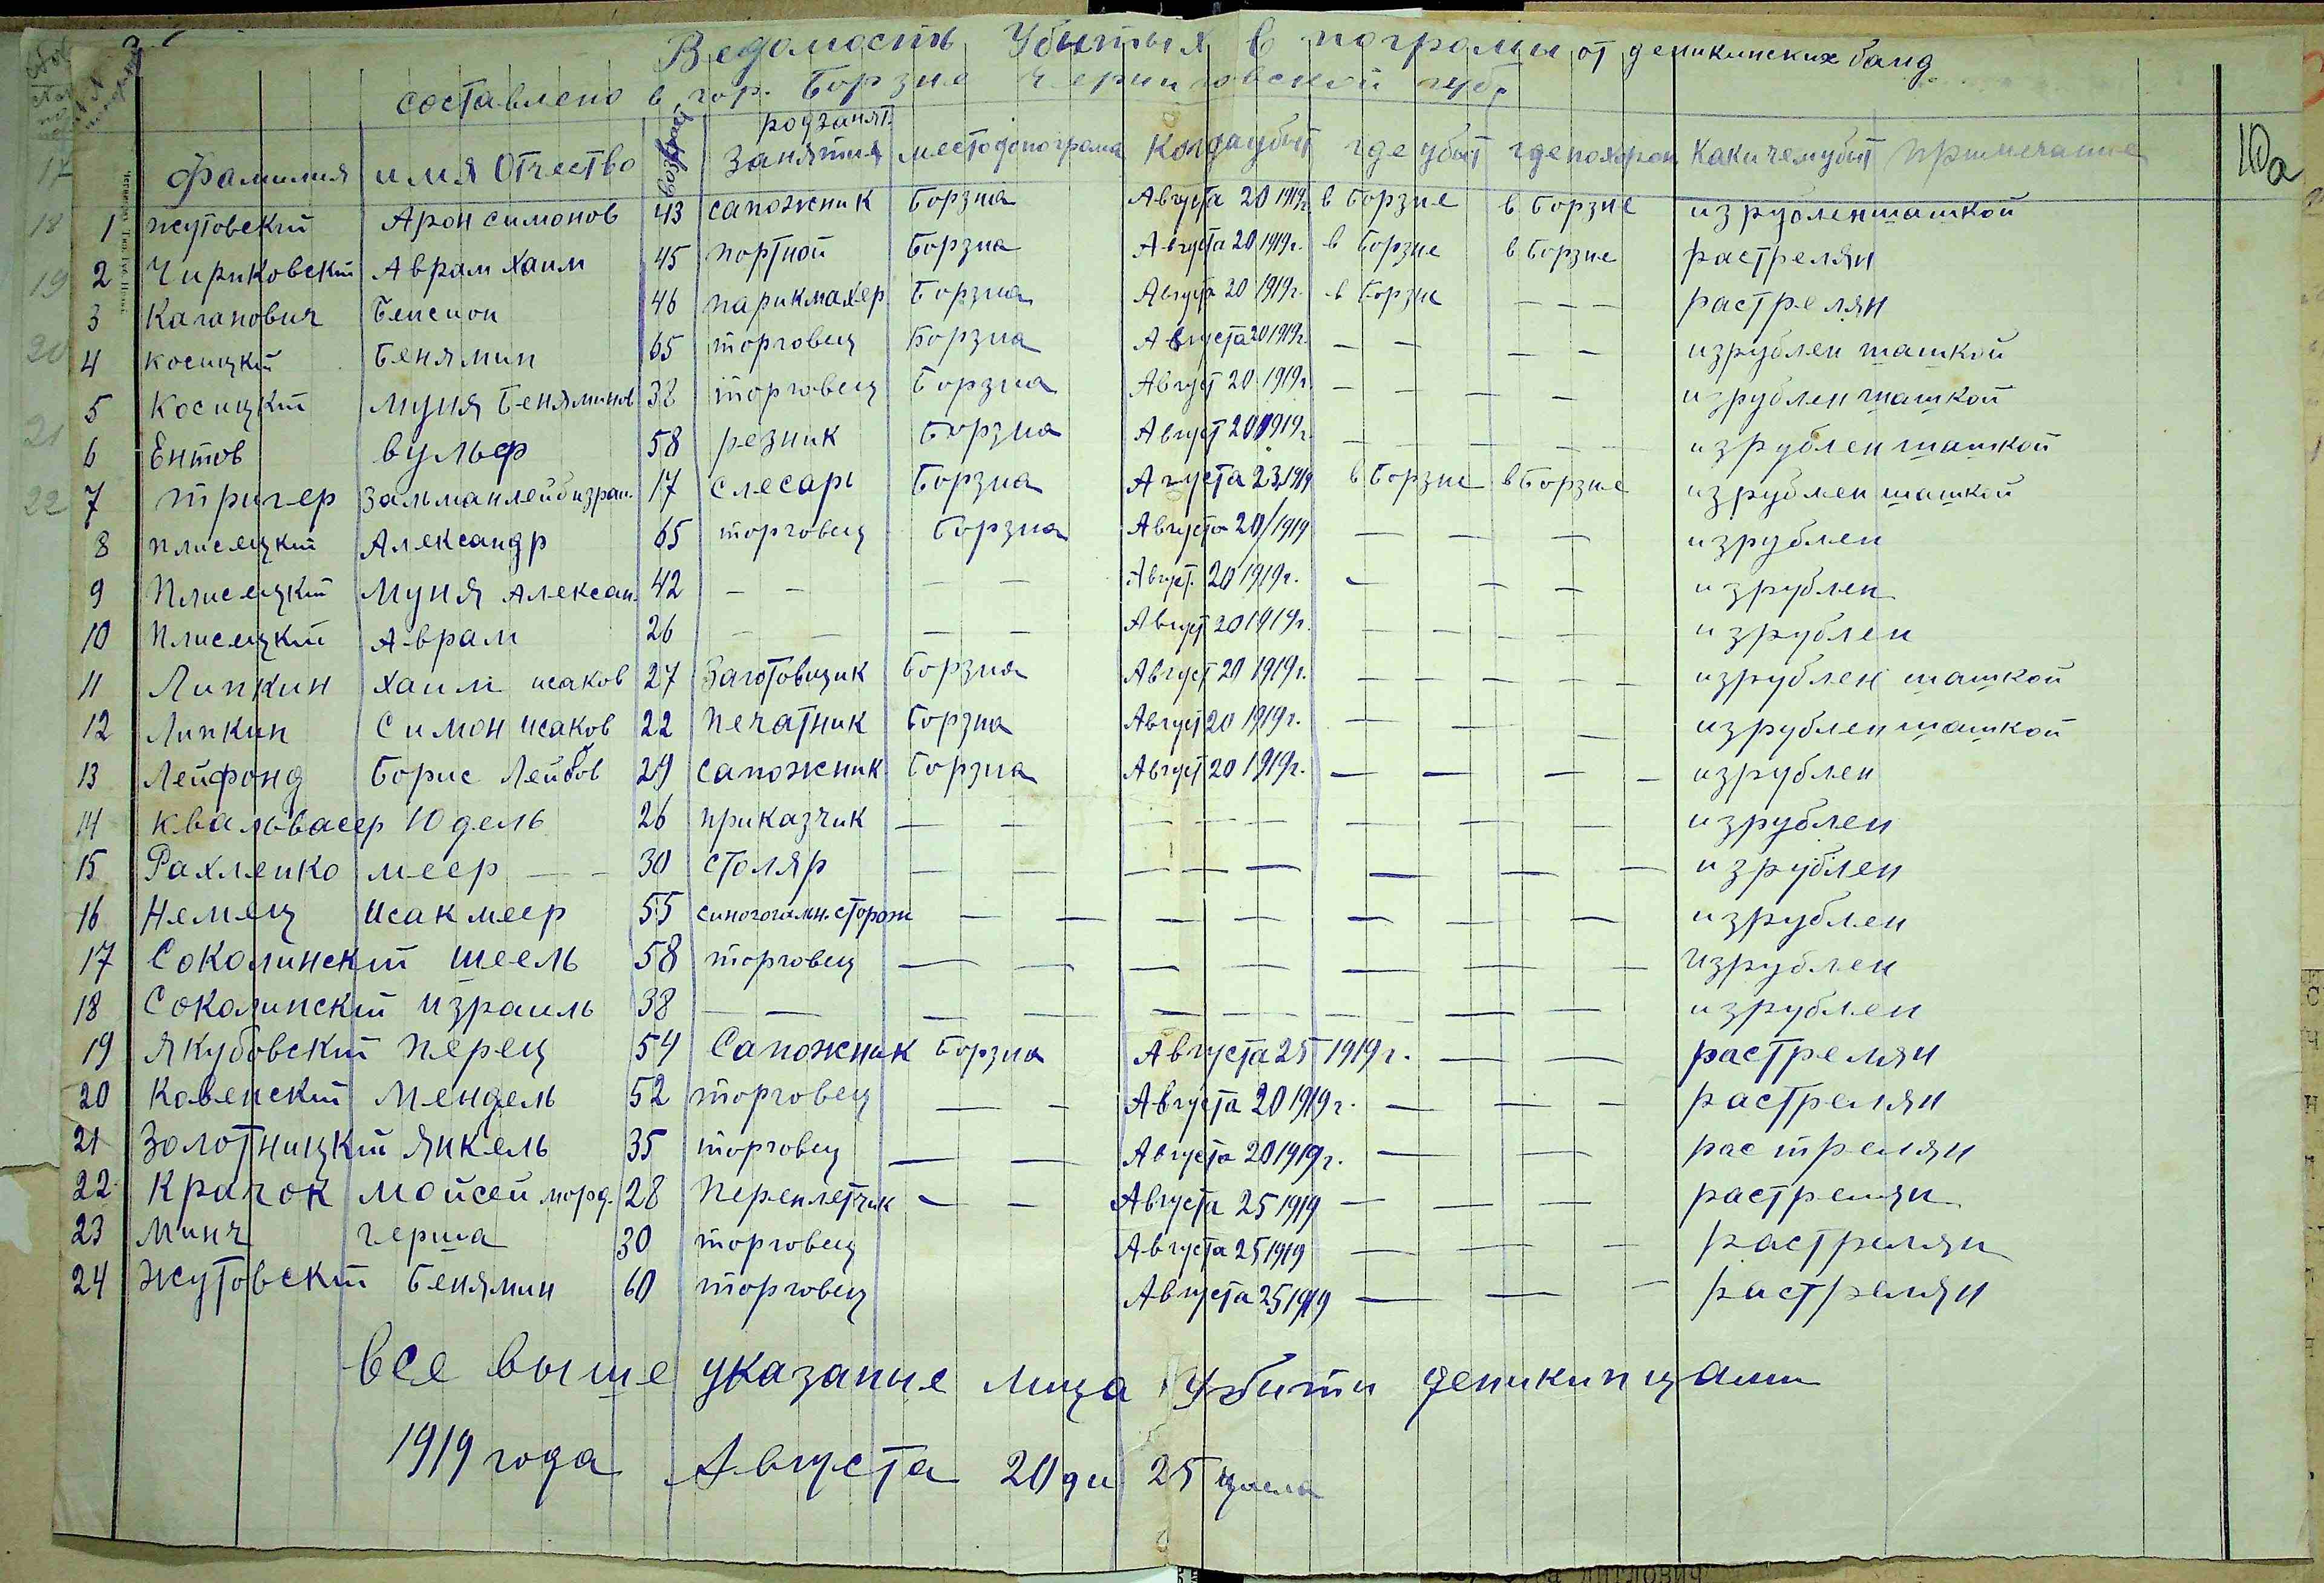 Ведомость Убитых в погромы от деникинских банд
составлено в гор. Борзне Черниговской губ.
10а
Фамилия имя Отчество возраст род занят. Занятия место до погрома Когда убит где убит где похорон Как и чем убит примечание
1 Жутовский Арон симонов 43 сапожник Борзна Августа 20 1919г. в Борзне в Борзне изрублен шашкой
2 Чириковский Аврам Хаим 45 портной Борзна Августа 20 1919г. в Борзне в Борзне растрелян
3 Каганович Бенсион 46 парикмахер Борзна Август 20 1919г. в Борзне — — — растрелян
4 косицкий Бенямин 65 торговец Борзна Августа 20 1919г. — — — — изрублен шашкой
5 Косицкий Муня Беняминов 32 торговец Борзна Август 20 1919г. — — — — изрублен шашкой
6 Ентов Вульф 58 резник Борзна Август 20 1919г. — — — — изрублен шашкой
7 Тригер Зальман лейб израил. 17 слесарь Борзна Августа 23 1919 в Борзне в Борзне изрублен шашкой
8 плисецкий Александр 65 торговец Борзна Августа 20/1919 — — — изрублен
9 Плисецкий Муня Алексан. 42 — — — — Август. 20 1919г. — — — изрублен
10 Плисецкий Аврам 26 — — — — Август 20 1919г. — — — — изрублен
11 Липкин Хаим исаков 27 Заготовщик Борзна Август 20 1919г. — — — — — изрублен шашкой
12 Липкин Симон исаков 22 Печатник Борзна Август 20 1919г. — — — изрублен шашкой
13 Лейфонд Борис Лейбов 29 сапожник Борзна Август 20 1919г. — — — — изрублен
14 Квальвасер Юдель 26 приказчик — — — — — — — — изрублен
15 Рахленко меер — — 30 столяр — — — — — — — — изрублен
16 Немец Исак меер 55 синогогальн. сторож — — — — — — — изрублен
17 Соколинский Шеель 58 торговец — — — — — — — изрублен
18 Соколинский Израиль 38 — — — — — — — — — — изрублен
19 Якубовский Перец 54 Сапожник Борзна Августа 25 1919г. — — растрелян
20 Ковенский Мендель 52 торговец — — Августа 20 1919г. — — — растрелян
21 Золотницкий Янкель 35 торговец — — Августа 20 1919г. — — растрелян
22 Крачок Мойсей морд. 28 Переплетчик — — Августа 25 1919 — — — растрелян
23 Минч герша 30 торговец Августа 25 1919 — — — растрелян
24 Жутовский Бенямин 60 торговец Августа 25 1919 — — — растрелян
все выше указание лица Убити деникинцами
1919 года Августа 20 ди 25 числа
17
18
19
20
21
22